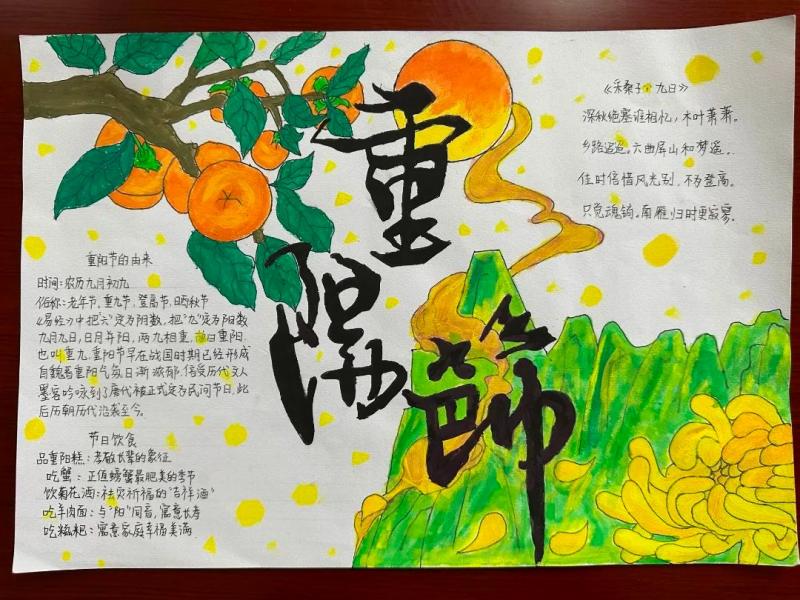 重陽節
《采桑子·九日》
深秋绝塞谁相忆,木叶萧萧。
乡路迢迢。六曲屏山和梦遥。
佳时倍惜风光别,不为登高。
只觉魂销。南雁归时更寂寥。
重阳节的由来
时间:农历九月初九
俗称:老年节,重九节,登高节,晒秋节
《易经》中把"六"定为阴数,把"九"定为阳数
九月九日,日月并阳,两九相重,故曰重阳,
也叫重九,重阳节早在战国时期已经形成
自魏晋重阳气氛日渐浓郁,倍受历代文人
墨客吟咏到了唐代被正式定为民间节日,此
后历朝历代沿袭至今。
节日饮食
品重阳糕:孝敬长辈的象征
吃蟹:正值螃蟹最肥美的季节
饮菊花酒:祛灾祈福的"吉祥酒"
吃羊肉面:与"阳"同音,寓意长寿
吃糍粑:寓意家庭幸福美满